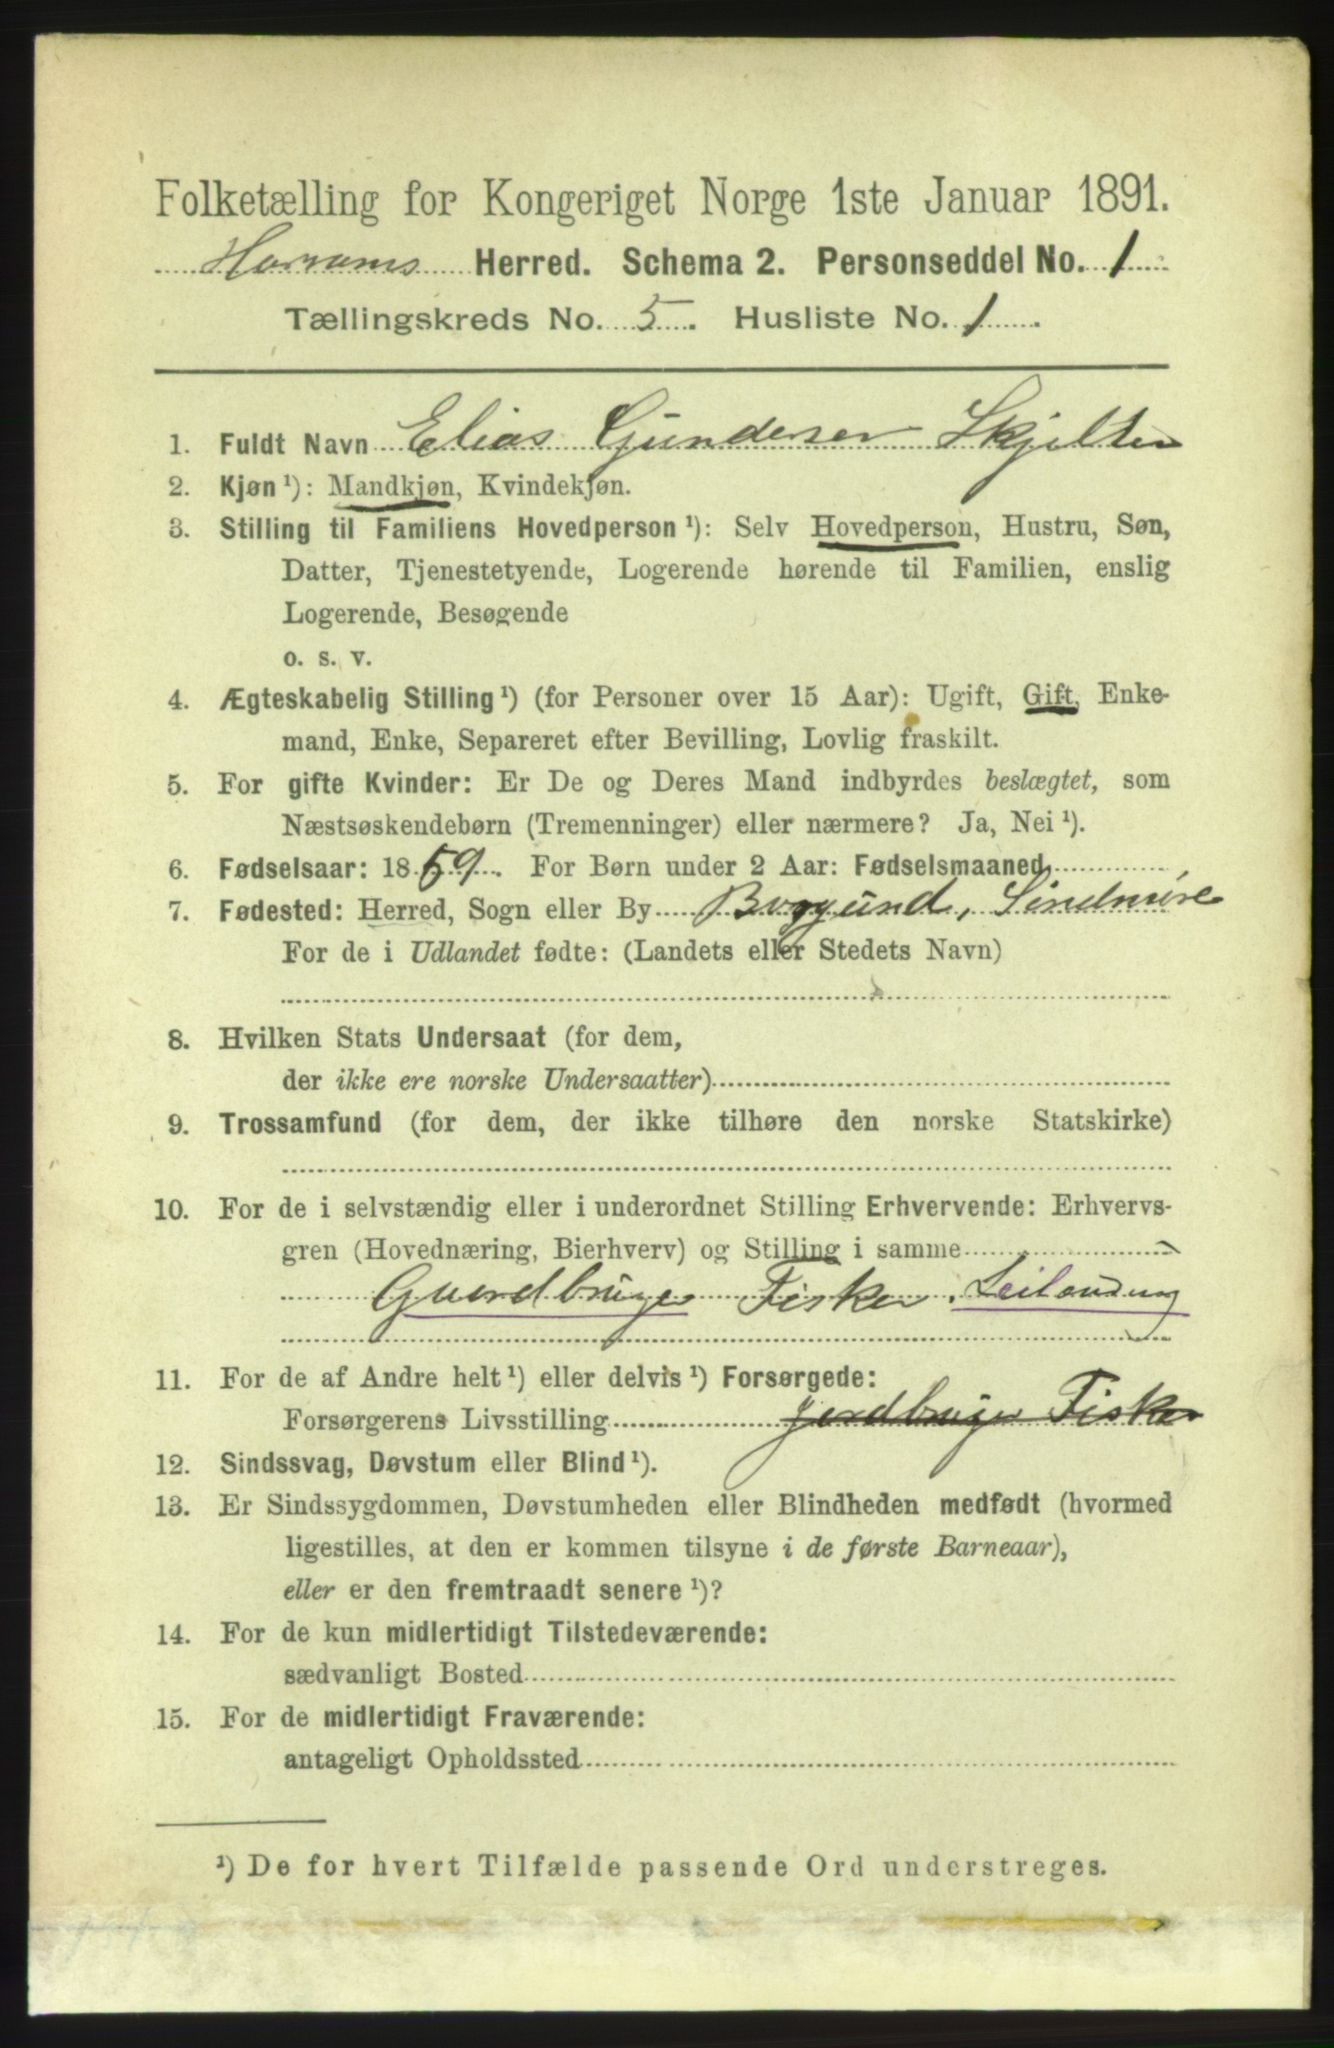 Folketælling for Kongeriget Norge 1ste Januar 1891.
Harrams Herred. Schema 2. Personseddel No. 1
Tællingskreds No. 5. Husliste No. 1.
1. Fuldt Navn Elias Gundersen Skjelten
2. Kjøn ¹): Mandkjøn, Kvindekjøn.
3. Stilling til Familiens Hovedperson ¹): Selv Hovedperson, Hustru, Søn,
Datter, Tjenestetyende, Logerende hørende til Familien, enslig
Logerende, Besøgende
o. s. v.
4. Ægteskabelig Stilling ¹) (for Personer over 15 Aar): Ugift, Gift, Enke-
mand, Enke, Separeret efter Bevilling, Lovlig fraskilt.
5. For gifte Kvinder: Er De og Deres Mand indbyrdes beslægtet, som
Næstsøskendebørn (Tremenninger) eller nærmere? Ja, Nei ¹).
6. Fødselsaar: 1859. For Børn under 2 Aar: Fødselsmaaned
7. Fødested: Herred, Sogn eller By Borgund, Sindmøre
For de i Udlandet fødte: (Landets eller Stedets Navn)
8. Hvilken Stats Undersaat (for dem,
der ikke ere norske Undersaatter)
9. Trossamfund (for dem, der ikke tilhøre den norske Statskirke)
10. For de i selvstændig eller i underordnet Stilling Erhvervende: Erhvervs-
gren (Hovednæring, Bierhverv) og Stilling i samme
Gaardbruger Fisker. Leilænding
11. For de af Andre helt ¹) eller delvis ¹) Forsørgede:
Forsørgerens Livsstilling Jordbruger Fisker
12. Sindssvag, Døvstum eller Blind ¹).
13. Er Sindssygdommen, Døvstumheden eller Blindheden medfødt (hvormed
ligestilles, at den er kommen tilsyne i de første Barneaar),
eller er den fremtraadt senere ¹)?
14. For de kun midlertidigt Tilstedeværende:
sædvanligt Bosted
15. For de midlertidigt Fraværende:
antageligt Opholdssted
¹) De for hvert Tilfælde passende Ord understreges.